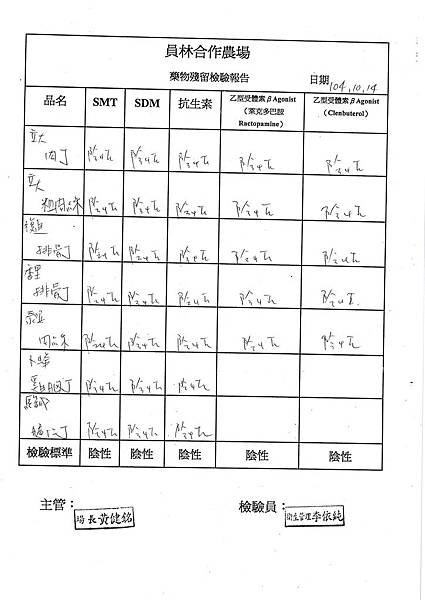 員林合作農場
藥物殘留檢驗報告
日期 104.10.14
品名 SMT SDM 抗生素 乙型受體素βAgonist（萊克多巴胺 Ractopamine） 乙型受體素βAgonist (Clenbuterol)
立大
肉丁 陰性 陰性 陰性 陰性 陰性
立大
粗肉絲 陰性 陰性 陰性 陰性 陰性
排骨丁 陰性 陰性 陰性 陰性 陰性
排骨丁 陰性 陰性 陰性 陰性 陰性
肉絲 陰性 陰性 陰性 陰性 陰性
雞胸丁 陰性 陰性 陰性
陰性 陰性 陰性
檢驗標準 陰性 陰性 陰性 陰性 陰性
主管： 場長黃健銘
檢驗員： 衛生管理李依純